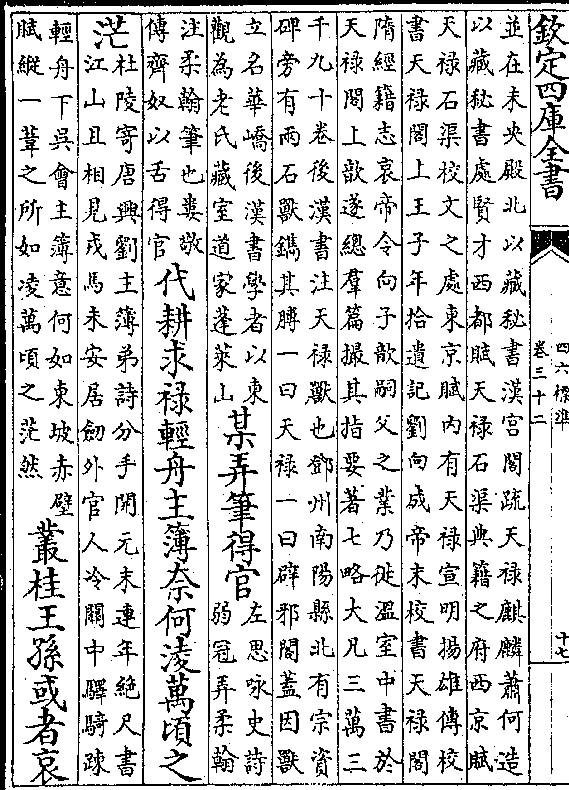 欽定四庫全書
四六標準
卷三十二
十七
並在未央殿北以藏秘書漢宫閣疏天禄麒麟蕭何造
以藏秘書處賢才西都賦天禄石渠典籍之府西京賦
天禄石渠校文之處東京賦内有天禄宣明揚雄傳校
書天禄閣上王子年拾遺記劉向成帝末校書天禄閣
隋經籍志哀帝令向子歆嗣父之業乃徙溫室中書於
天禄閣上歆遂總羣篇撮其指要著七略大凡三萬三
千九十卷後漢書注天禄獸也鄧州南陽縣北有宗資
碑旁有兩石獸鐫其膊一曰天禄一曰辟邪閣蓋因獸
立名華嶠後漢書學者以東
觀為老氏藏室道家蓬萊山
某弄筆得官
左思咏史詩
弱冠弄柔翰
注柔翰筆也婁敬
傳齊奴以舌得官
代耕求禄輕舟主簿奈何淩萬頃之
茫
杜陵寄唐興劉主簿弟詩分手開元末連年絶尺書
江山且相見戎馬未安居劒外官人冷關中驛騎疎
輕舟下吳會主簿意何如東坡赤壁
賦縱一葦之所如凌萬頃之茫然
叢桂王孫或者哀